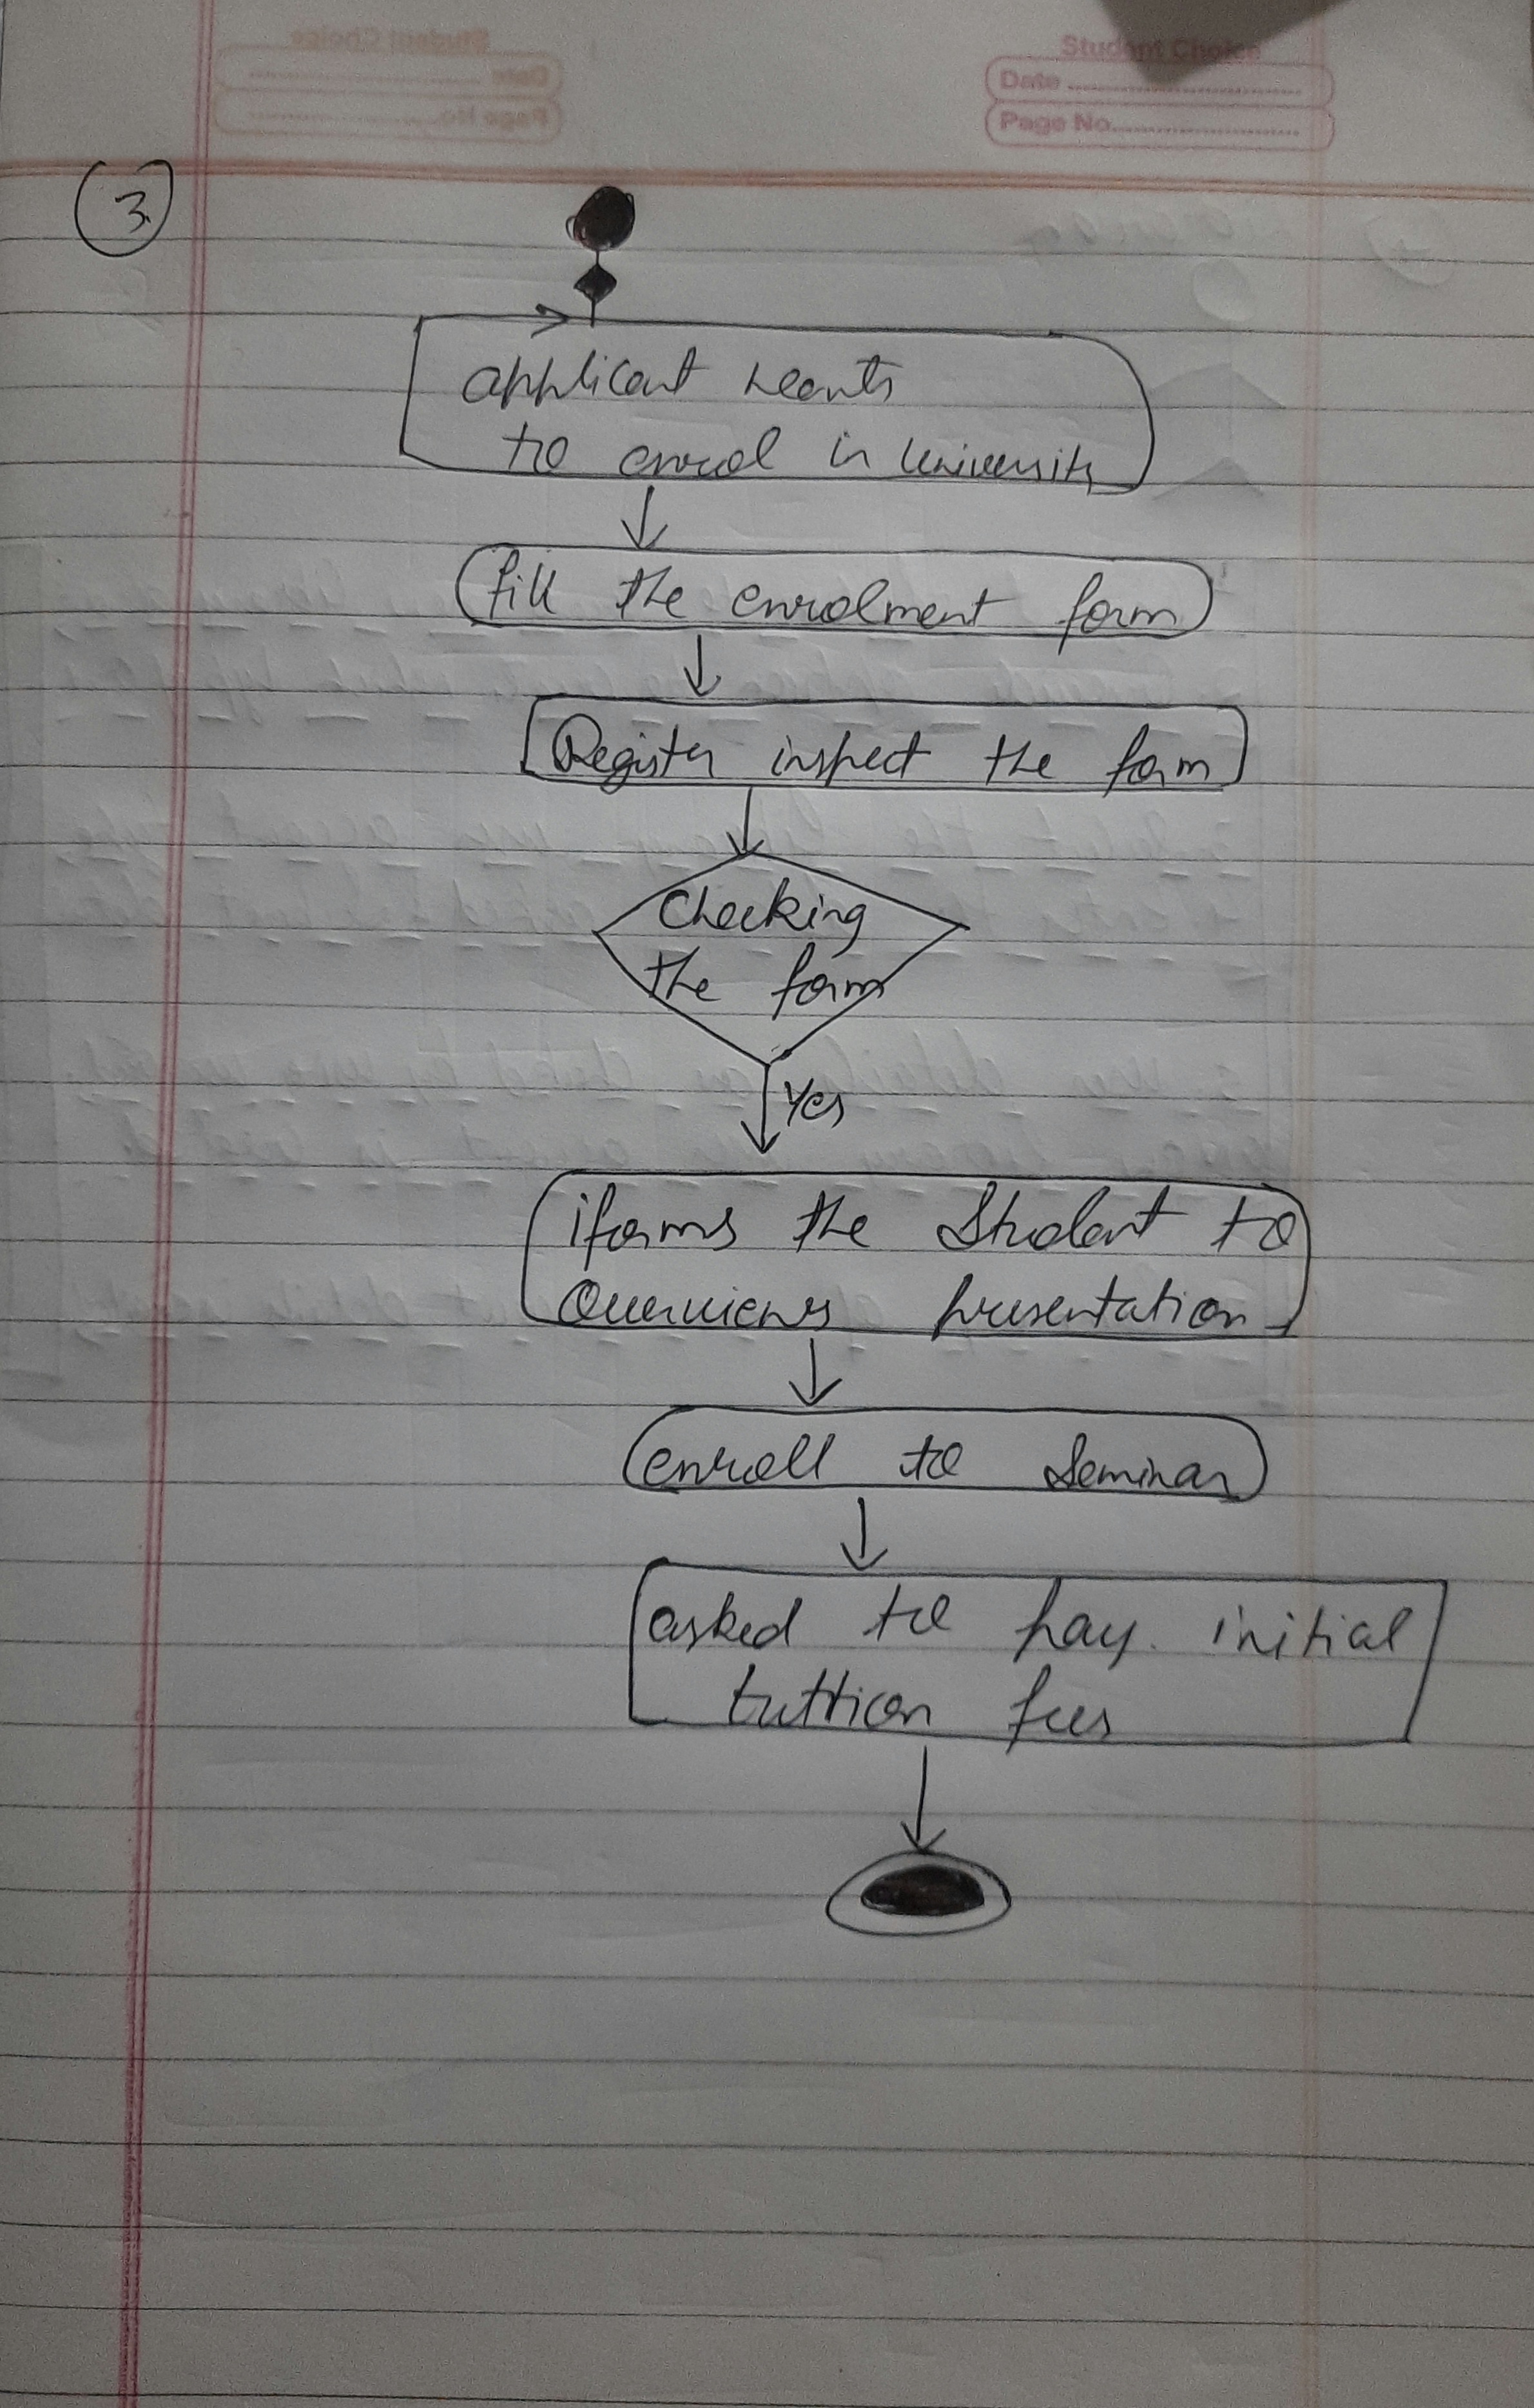 Student Choice
Date
Page No.
3.
applicant wants
to enrol in University
fill the enrolment form
Register inspect the form
Checking
the form
Yes
iforms the Student to
Overviews presentation
enroll to Seminar
asked to pay initial
tuttion fees